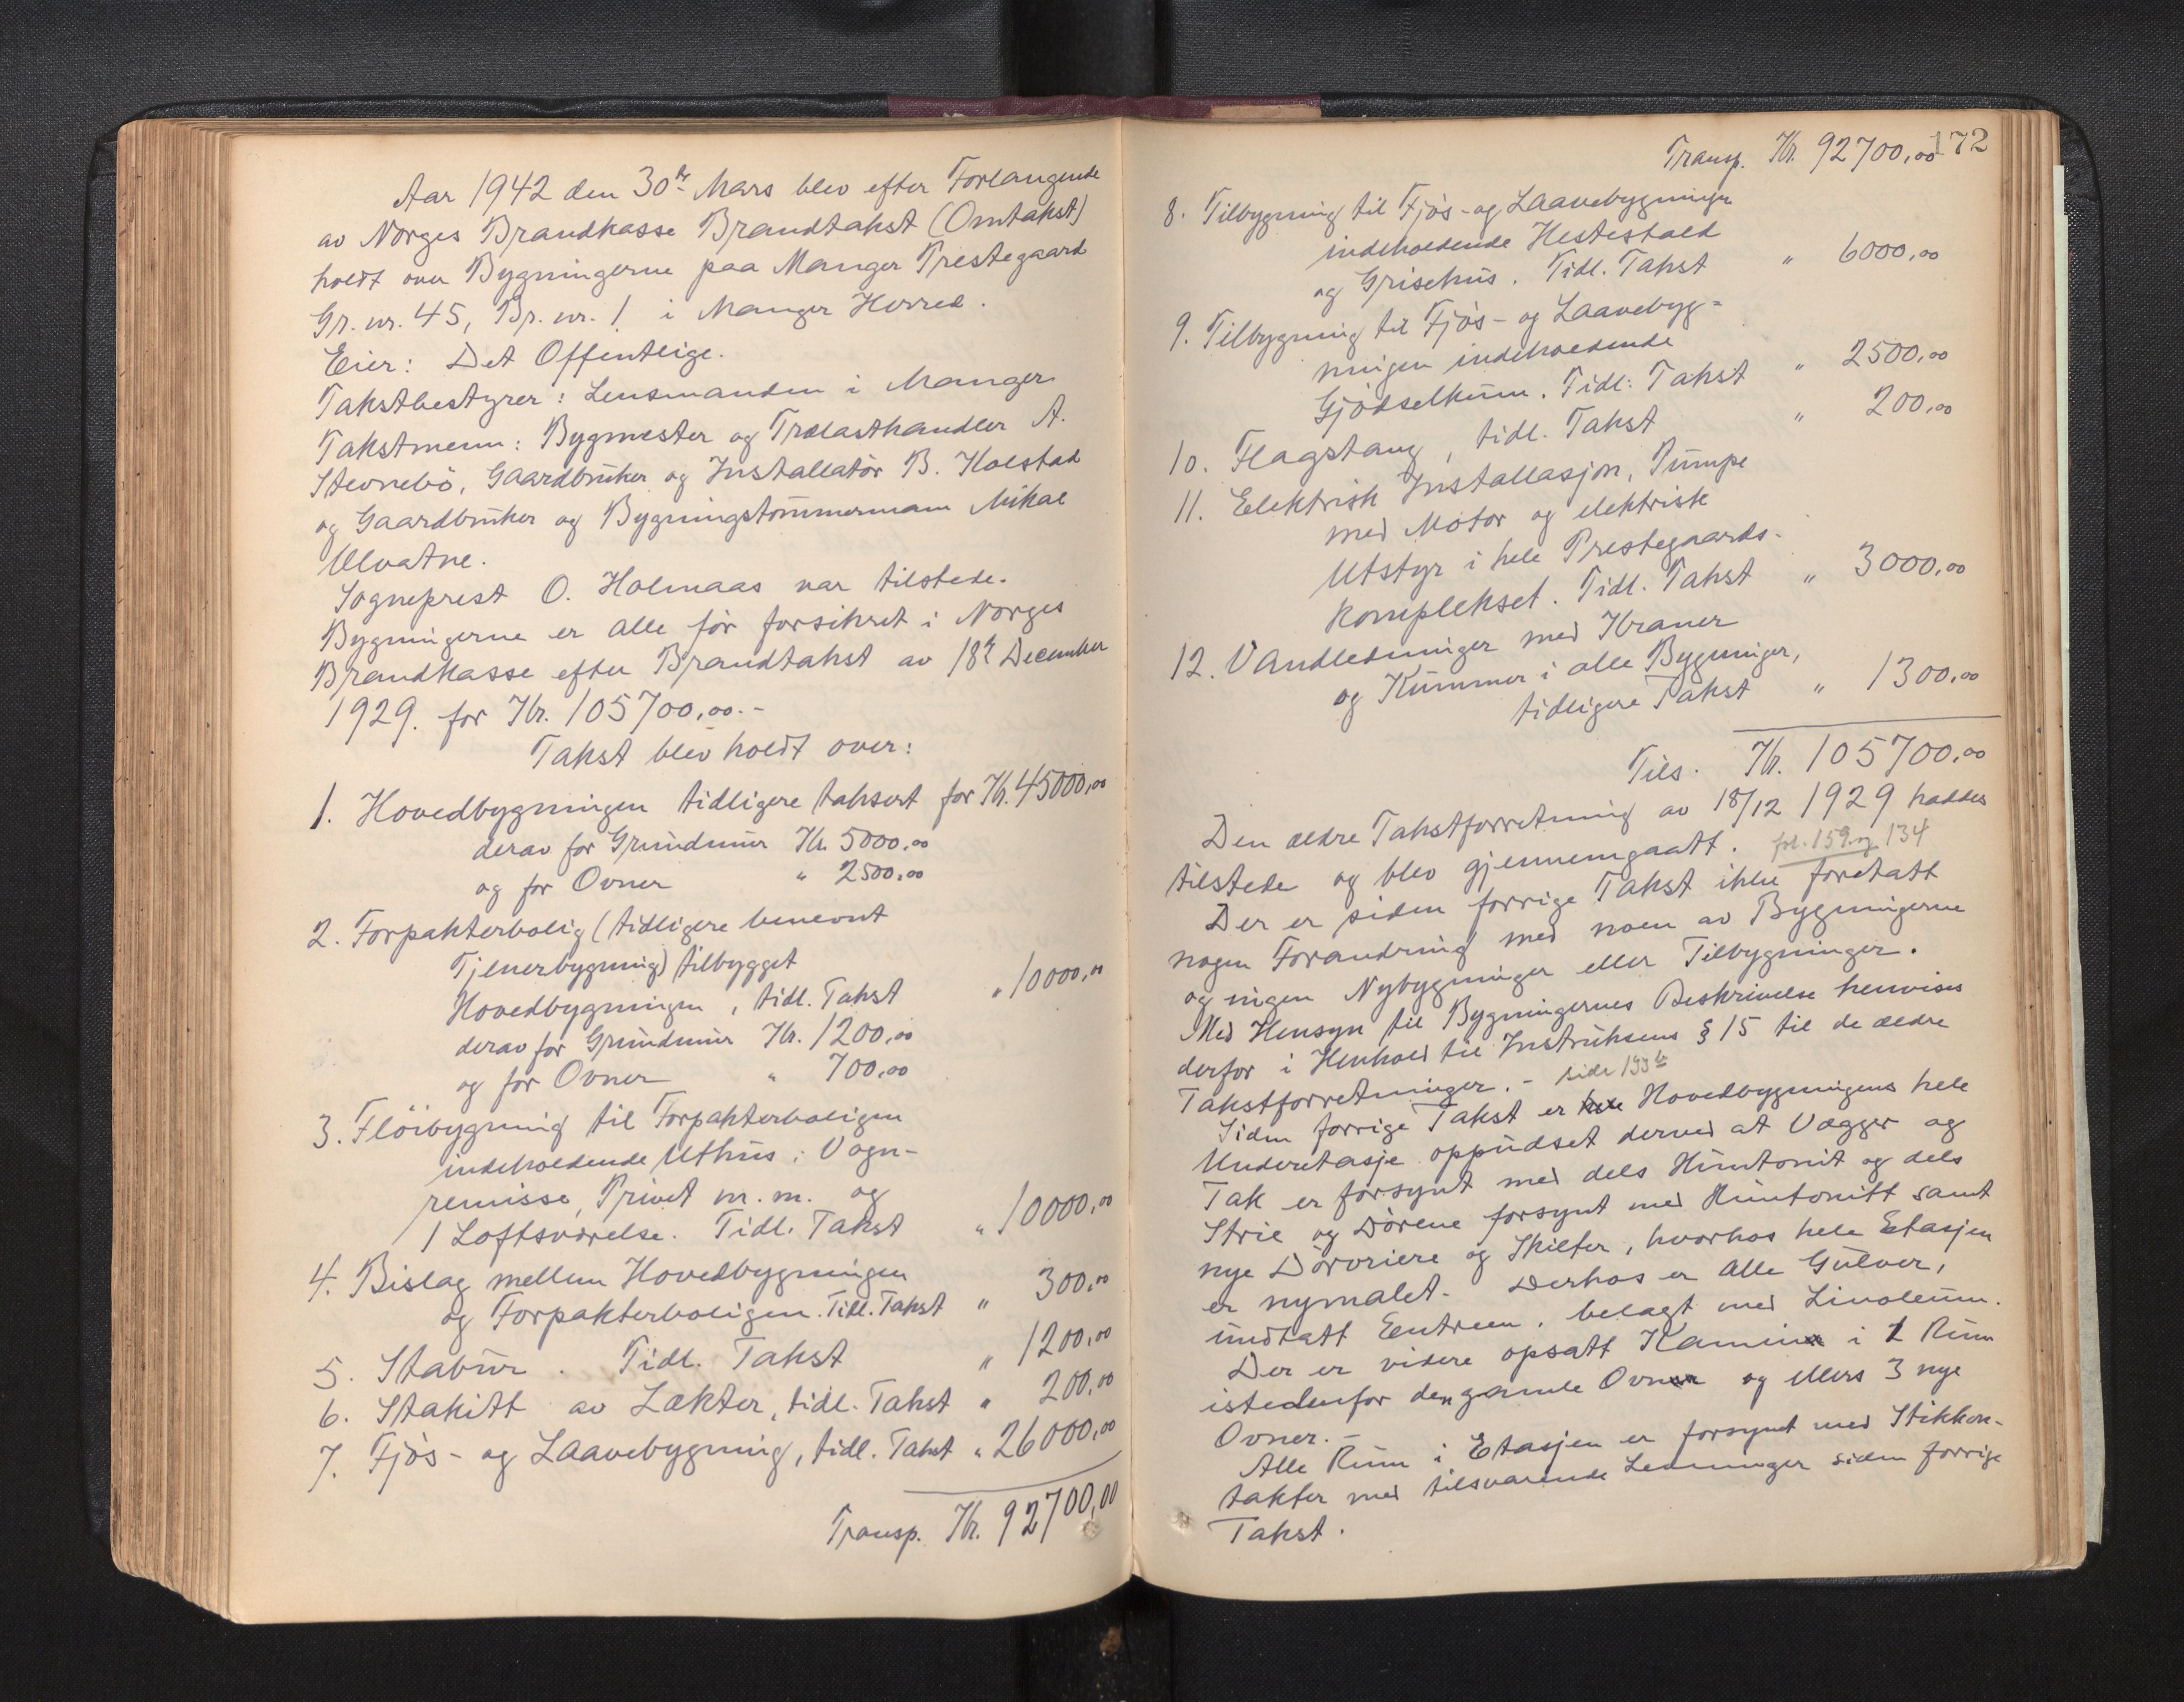 Aar 1942 den 30te Mars blev efter Forlangende
av Norges Brandkasse Brandtakst (Omtakst)
holdt over Bygningerne paa Manger Prestegaard
Gr. nr. 45, Br. nr. 1 i Manger Herred.
Eier: Det Offentlige.
Takstbestyrer: Lensmanden i Manger.
Takstmenn: Bygmester og Trælasthandler A.
Stevnebö, Gaardbruker og Installatör B. Kolstad
og Gaardbruker og Bygningstömmermann Mikal
Ulvatne.
Sogneprest O. Holmaas var tilstede.
Bygningerne er alle för forsikret i Norges
Brandkasse efter Brandtakst av 18de December
1929. for Kr. 105700,00.-
Takst blev holdt over:
1. Hovedbygningen tidligere taksert for Kr. 45000,00
derav for Grundmur Kr. 5000,00
og for Ovner " 2500,00
2. Forpakterbolig (tidligere benevnt
Tjenerbygning) tilbygget
Hovedbygningen, tidl. Takst " 10000,00
derav for Grundmur Kr. 1200,00
og for Ovner " 700,00
3. Flöibygning til Forpakterboligen
indeholdende Uthus: Vogn-
remisse, Privet m.m. og
1 Loftsværelse. Tidl. Takst " 10000,00
4. Bislag mellem Hovedbygningen
og Forpakterboligen. Tidl. Takst " 300,00
5. Stabur. Tidl. Takst " 1200,00
6. Stakitt av Lækter, tidl. Takst " 200,00
7. Fjös- og Laavebygning, tidl. Takst " 26000,00
Transp. Kr. 92700,00
172
Transp. Kr. 92700,00
8. Tilbygning til Fjös- og Laavebygningen
indeholdende Hestestald
og Grisehus. Tidl. Takst " 6000,00
9. Tilbygning til Fjös- og Laavebyg-
ningen indeholdende
Gjödselkum. Tidl. Takst " 2500,00
10. Flagstang, tidl. Takst " 200,00
11. Elektrisk Installasjon, Pumpe
med Motor og elektrisk
Utstyr i hele Prestegaards-
komplekset. Tidl. Takst " 3000,00
12. Vandledninger med Kraner
og Kummer i alle Bygninger,
tidligere Takst " 1300,00
Tils. Kr. 105700,00
Den ældre Takstforretning av 18/12 1929 haddes
tilstede og blev gjennemgaatt. fol. 159 og 134
Der er siden forrige Takst ikke foretatt
nogen Forandring med noen av Bygningerne
og ingen Nybygninger eller Tilbygninger.
Med Hensyn til Bygningernes Beskrivelse henvises
derfor i Henhold til Instruksens § 15 til de ældre
Takstforretninger. - side 133b
Siden forrige Takst er hele Hovedbygningens hele
Underetasje oppudset derved at Vægger og
Tak er forsynt med dels Huntonit og dels
Strie og Dörene forsynt med Huntonitt samt
nye Dörvriere og Skilter, hvorhos hele Etasjen
er nymalet. Derhos er alle Gulver,
undtatt Entreen, belagt med Linoleum.
Der er videre opsatt Kamin i 1 Rum
istedenfor den gamle Ovn og ellers 3 nye
Ovner. -
Alle Rum i Etasjen er forsynet med Stikkon-
takter med tilsvarende Ledninger siden forrige
Takst.